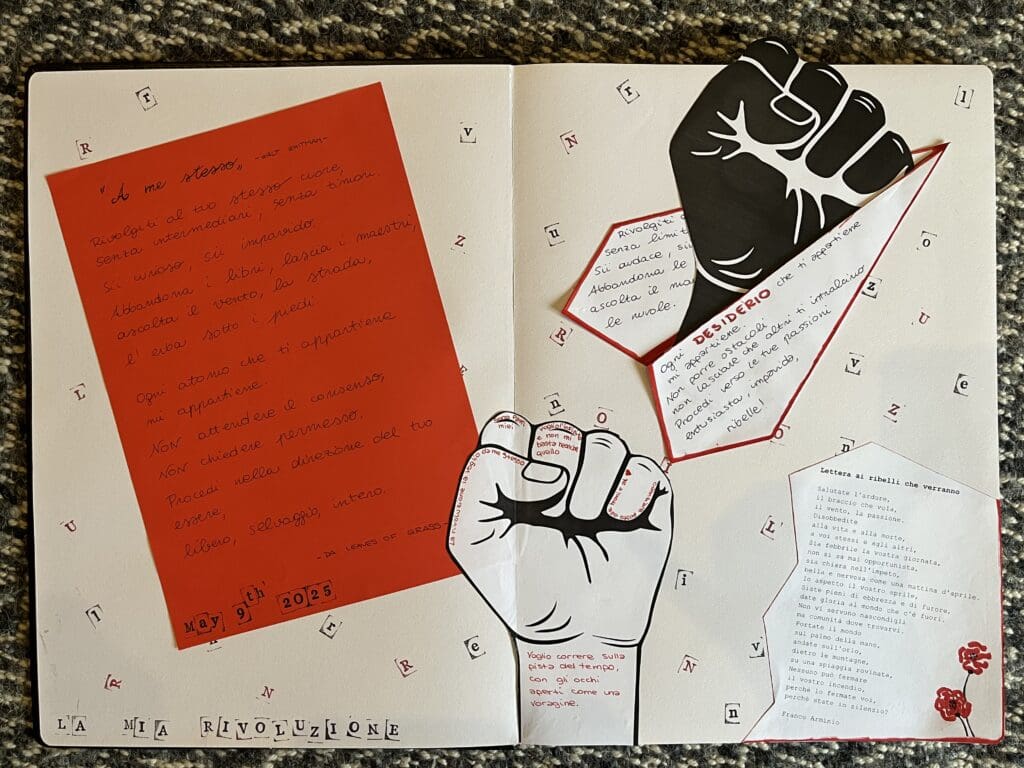 "A me stesso" -WALT WHITMAN-
Rivolgiti al tuo stesso cuore,
senza intermediari, senza timori.
Sii curioso, sii impavido.
Abbandona i libri, lascia i maestri,
ascolta il vento, la strada,
l'erba sotto i piedi.
Ogni atomo che ti appartiene
mi appartiene.
NON attendere il consenso,
NON chiedere permesso.
Procedi nella direzione del tuo
essere,
libero, selvaggio, intero.
-DA LEAVES OF GRASS-
May 9th 2025
LA MIA RIVOLUZIONE
Rivolgiti a
senza limit
Sii audace, sii
Abbandona le
ascolta il ma
le nuvole.
Ogni DESIDERIO che ti appartiene
mi appartiene.
Non porre ostacoli
non lasciare che altri ti intralcino
Procedi verso le tue passioni
entusiasta, impavido,
ribelle!
La rivoluzione la voglio da me stesso
miei
e non mi
basta neanche
quello
Voglio correre sulla
pista del tempo,
con gli occhi
aperti come una
voragine.
Lettera ai ribelli che verranno
Salutate l'ardore,
il braccio che vola,
il vento, la passione.
Disobbedite
alla vita e alla morte,
a voi stessi e agli altri,
Sia febbrile la vostra giornata,
non si sa mai opportunista,
sia chiara nell'impeto,
bella e nervosa come una mattina d'aprile.
Io aspetto il vostro aprile,
Siate pieni di ebbrezza e di furore,
date gloria al mondo che c'è fuori.
Non vi servono nascondigli
ma comunità dove trovarvi.
Portate il mondo
sul palmo della mano,
andate sull'orlo,
dietro le montagne,
su una spiaggia rovinata,
Nessuno può fermare
il vostro incendio,
perché lo fermate voi,
perché state in silenzio?
Franco Arminio